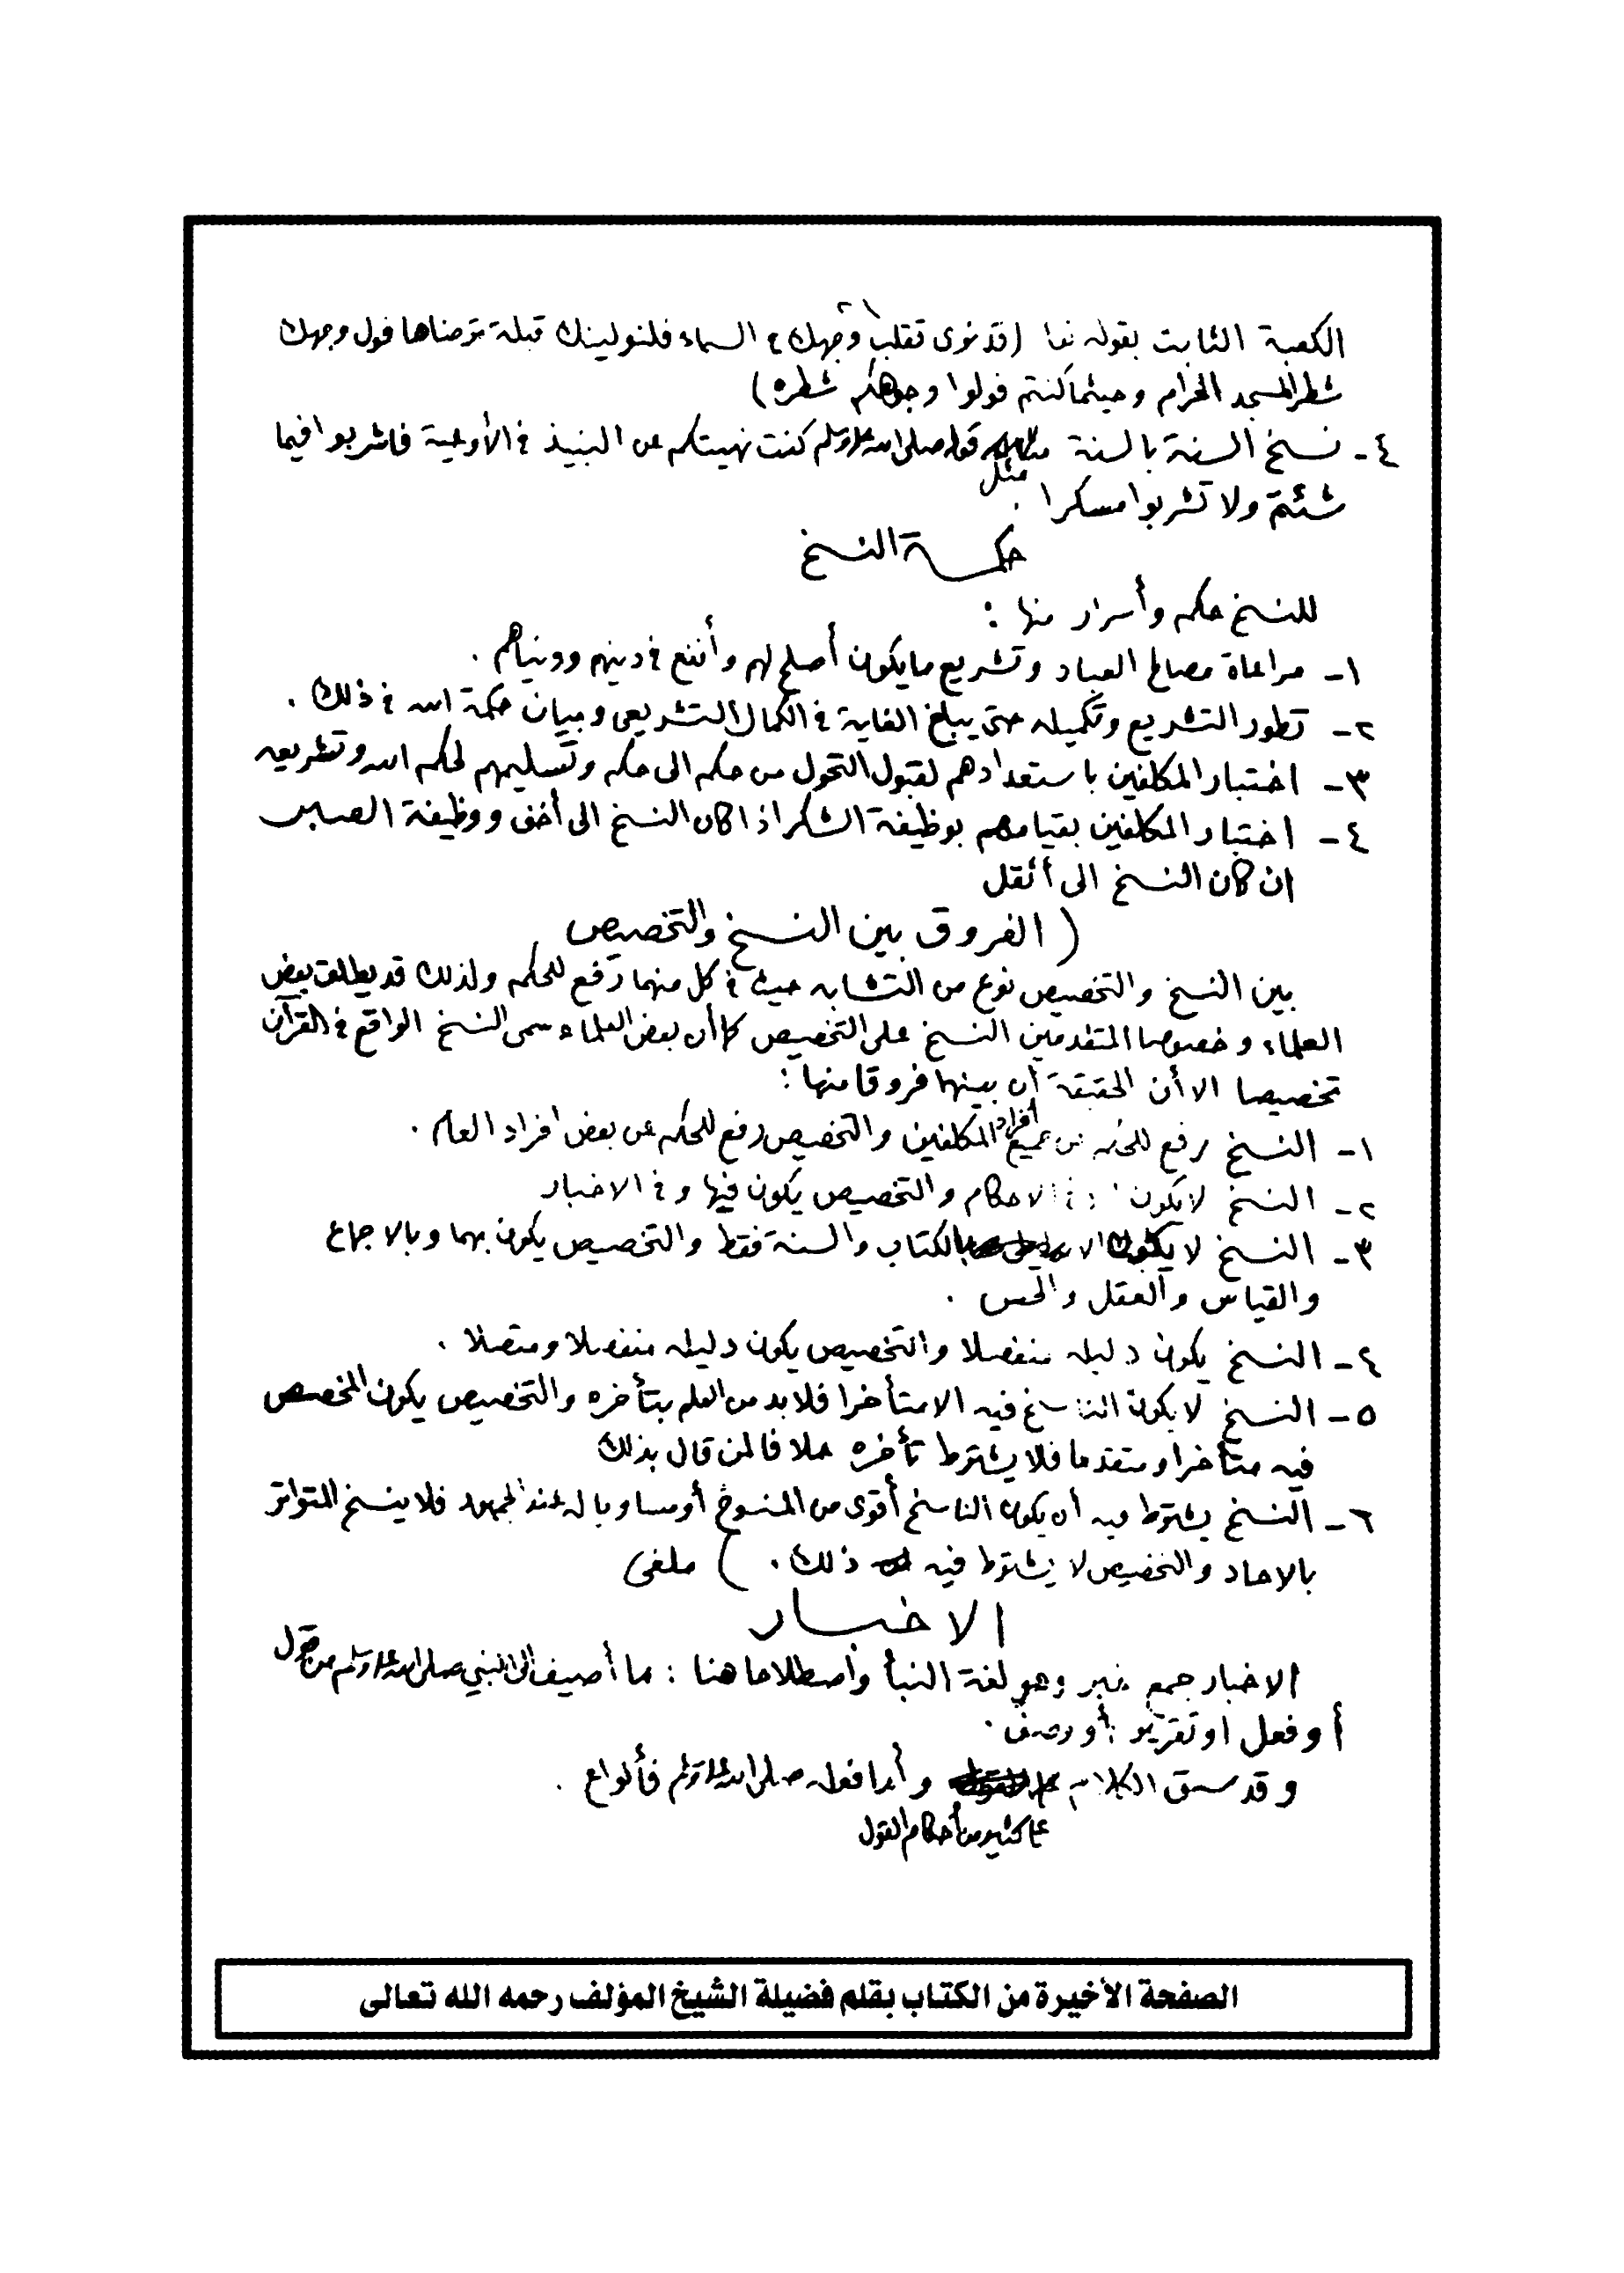 الكعبة الثابت بقوله تعا (قد نرى تقلب وجهك في السماء فلنولينك قبلة ترضاها فول وجهك
شطر المسجد الحرام وحيثما كنتم فولوا وجوهكم شطره)
٤- نسخ السنة بالسنة مثل قوله صلى الله عليه وسلم كنت نهيتكم عن النبيذ في الأوعية فاشربوا فيما
شئتم ولا تشربوا مسكرا .
حكمة النسخ
للنسخ حكم وأسرار منها :
١- مراعاة مصالح العباد وتشريع ما يكون أصلح لهم وأنفع في دينهم ودنياهم .
٢- تطور التشريع وتكميله حتى يبلغ الغاية في الكمال التشريعي وبيان حكمة الله في ذلك .
٣- اختبار المكلفين باستعدادهم لقبول التحول من حكم الى حكم وتسليمهم لحكم الله وتشريعه
٤- اختبار المكلفين بقيامهم بوظيفة الشكر اذا كان النسخ الى أخف ووظيفة الصبر
ان كان النسخ الى أثقل
( الفروق بين النسخ والتخصيص
بين النسخ والتخصيص نوع من التشابه حيث في كل منهما رفع للحكم ولذلك قد يطلق بعض
العلماء وخصوصا المتقدمين النسخ على التخصيص كما أن بعض العلماء سمى النسخ الواقع في القرآن
تخصيصا الا أن الحقيقة أن بينهما فروقا منها :
١- النسخ رفع للحكم عن جميع أفراد المكلفين والتخصيص رفع للحكم عن بعض افراد العام .
٢- النسخ لا يكون في الاحكام والتخصيص يكون فيها و في الاخبار
٣- النسخ لا يكون الا بالكتاب والسنة فقط والتخصيص يكون بهما وبالاجماع
والقياس والعقل والحس .
٤- النسخ يكون دليله منفصلا والتخصيص يكون دليله منفصلا ومتصلا .
٥- النسخ لا يكون الناسخ فيه الا متأخرا فلا بد من العلم بتأخره والتخصيص يكون المخصص
فيه متأخرا ومتقدما فلا يشترط تأخره خلافا لمن قال بذلك
٦- النسخ يشترط فيه أن يكون الناسخ أقوى من المنسوخ أو مساويا له عند الجمهور فلا ينسخ المتواتر
بالاحاد والتخصيص لا يشترط فيه ذلك . ) ملغى
الاخبار
الاخبار جمع خبر وهو لغة النبأ واصطلاحا هنا : ما أضيف الى النبي صلى الله عليه وسلم من قول
أو فعل او تقرير أو وصف .
وقد سبق الكلام على كثير من أحكام القول وأما فعله صلى الله عليه وسلم فأنواع .
الصفحة الأخيرة من الكتاب بقلم فضيلة الشيخ المؤلف رحمه الله تعالى